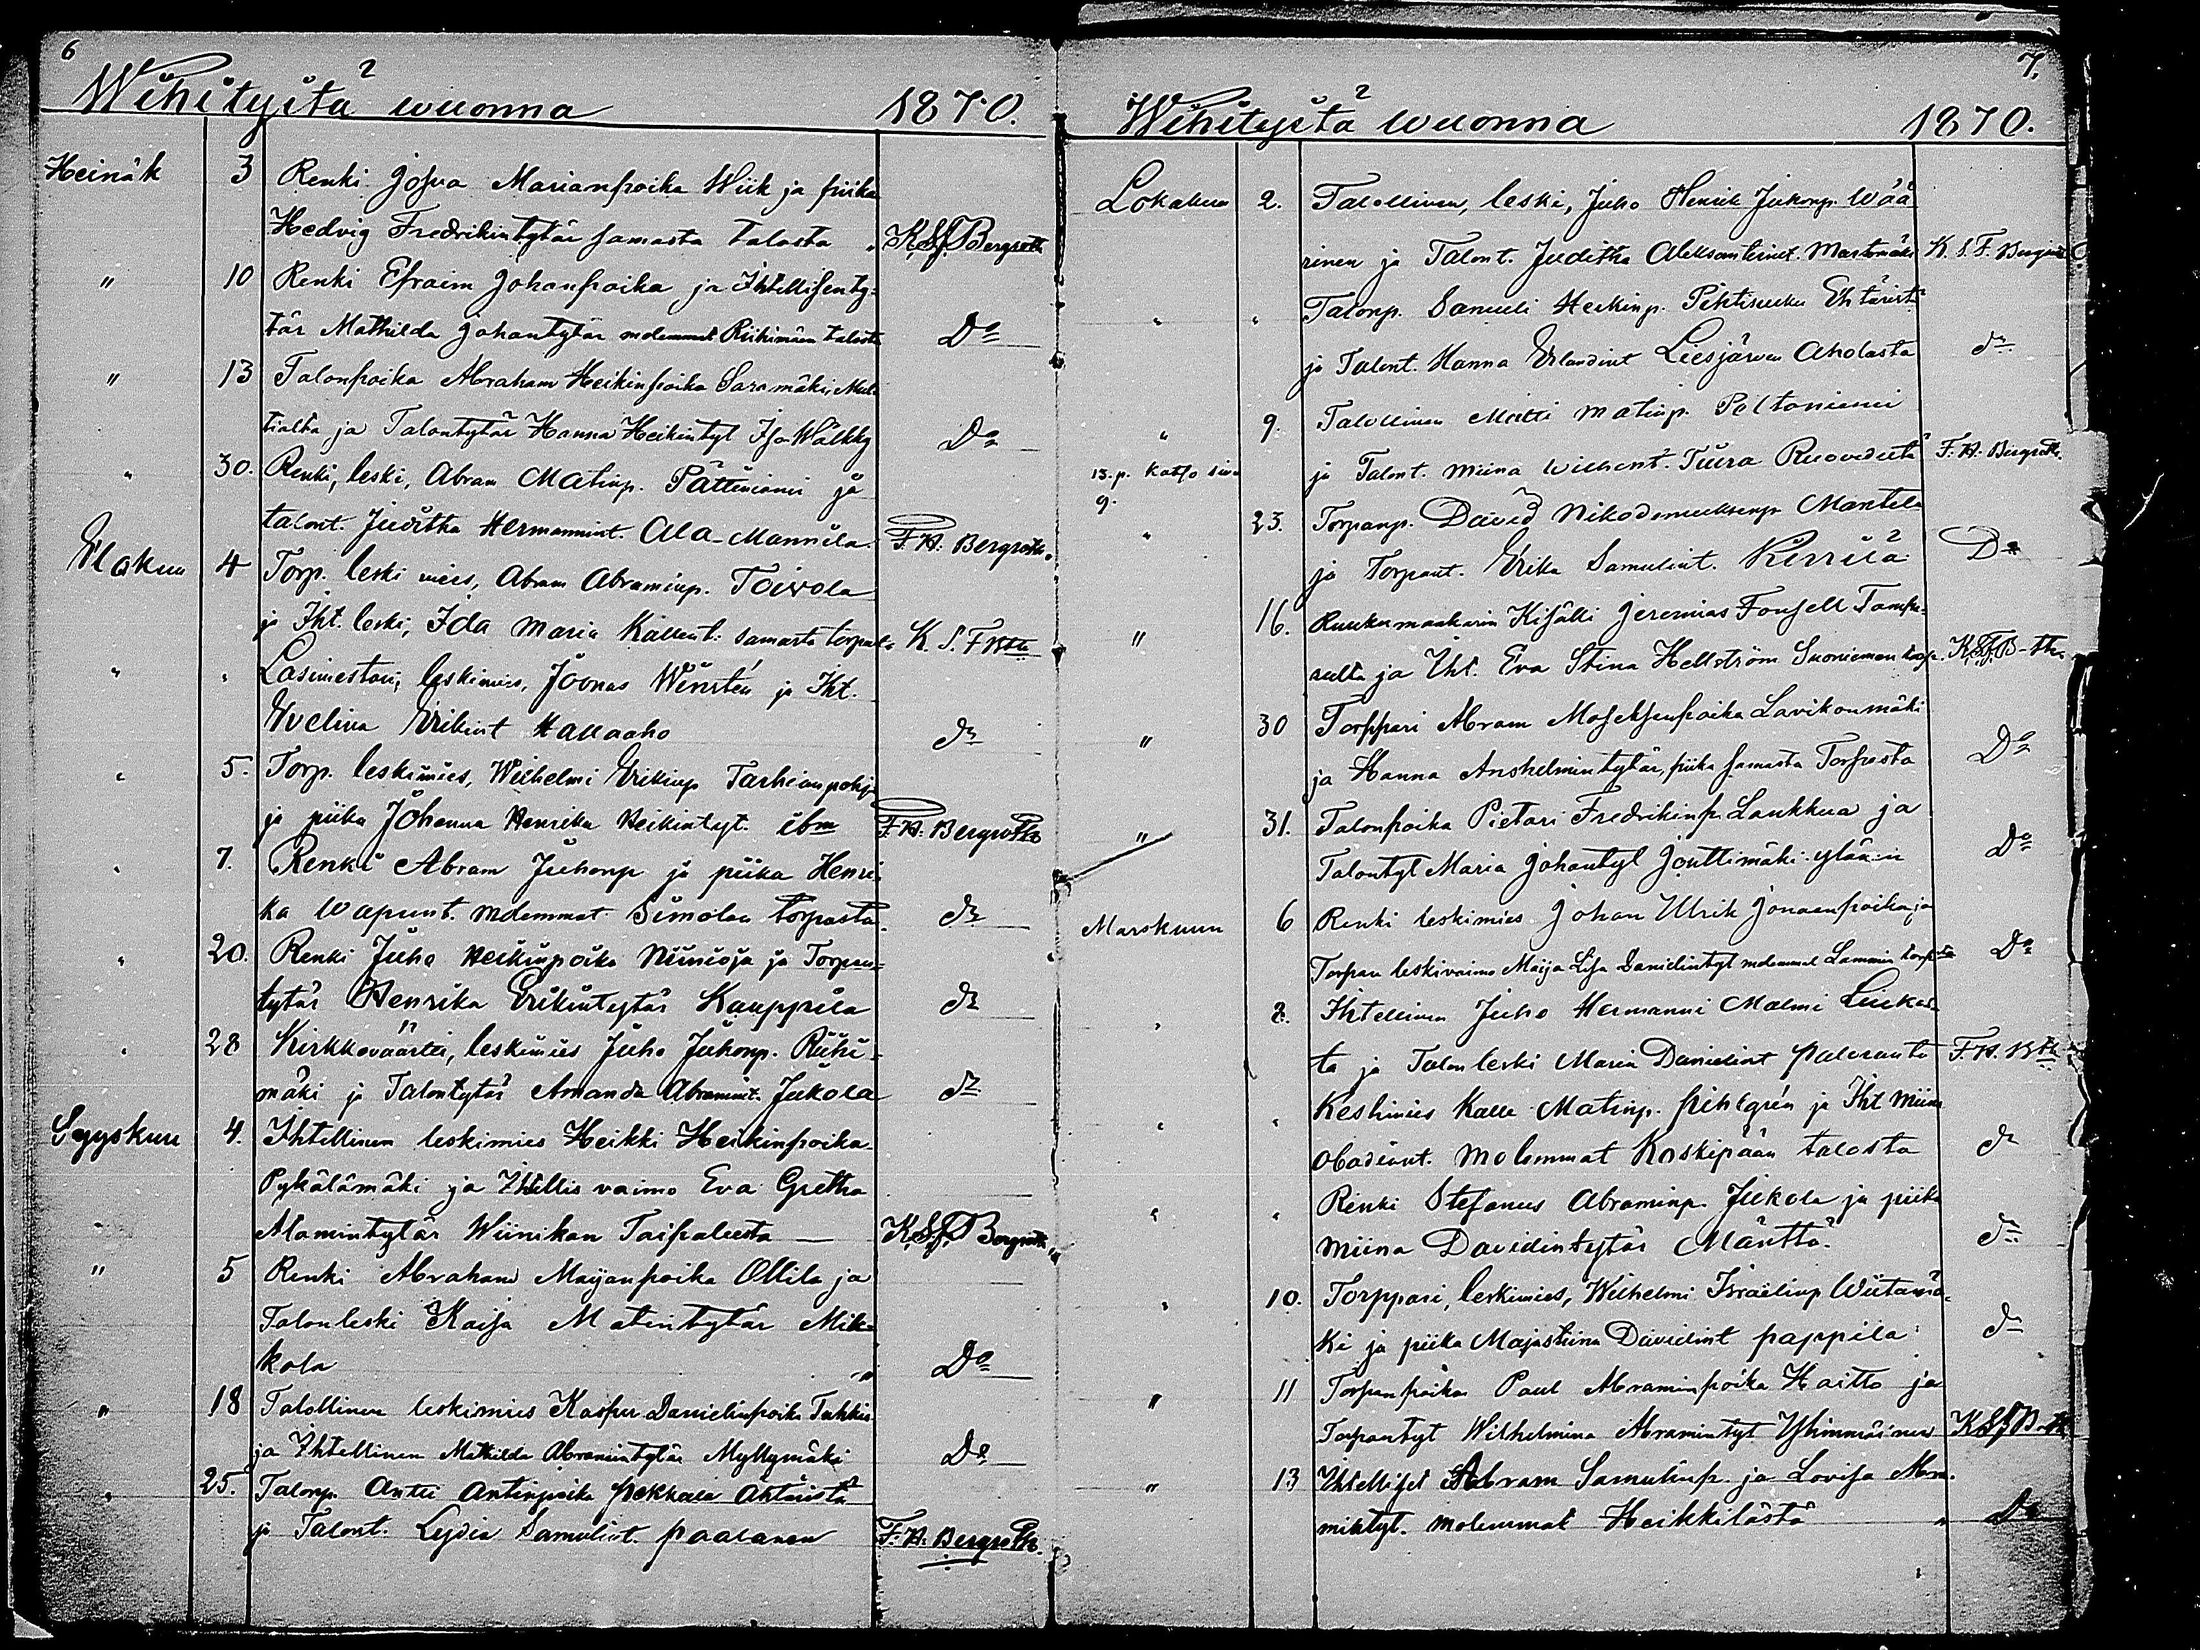 6
Wihityistä wuonna 1870.
Heinäk 3 Renki Josua Marianpoika Wiik ja piika
Hedvig Fredrikintytär samasta talosta " K.S.F. Bergroth
" 10 Renki Efraim Johanpoika ja Ihtellisenty-
tär Mathilda Johantytär molemmat Riihimäen talosta Do
" 13 Talonpoika Abraham Heikinpoika Saramäki, Mul-
tialta ja Talontytär Hanna Heikintyt Iso Wälkky Do
" 30. Renki, leski, Abram Matinp. Pätteniemi ja
talont. Juditha Hermannint. Ala-Mannila F.H. Bergroth.
Elokuu 4 Torp. leski mies, Abram Abraminp. Toivola
ja Iht. leski, Ida Maria Kallent: samasta torpasta K.S.F. Bth
" " Lasimestari, leskimies, Joonas Winstén ja Iht.
Evelina Erikint Hallaaho do
" 5. Torp. leskimies, Wilhelmi Erikinp Tarhianpohja
ja piika Johanna Henrika Heikintyt. ibm F.H. Bergroth
" 7. Renki Abram Juhonp ja piika Henri-
ka Wapunt. molemmat Simolan torpasta do
" 20. Renki Juho Heikinpoika Niinioja ja Torpan-
tytär Henrika Erikintytär Kauppila do
" 28 Kirkkoväärtti, leskimies Juho Juhonp. Riihi-
mäki ja Talontytär Amanda Abramint. Jukola do
Syyskuu 4. Ihtellinen leskimies Heikki Heikinpoika
Pykälämäki ja Ihtellis vaimo Eva Gretha
Adamintytär Wiinikan Taipaleesta — K.S.F. Bergroth
" 5 Renki Abraham Maijanpoika Ollila ja
Talonleski Kaisa Matintytär Mik-
kola " Do
" 18 Talollinen leskimies Kasper Danielinpoika
ja Ihtellinen Mathilda Abramintytär Myllymäki Do
" 25. Talonp. Antti Antinpoika Pekkala Ähtäristä
ja Talont. Lydia Samulint. Paalanen F.H. Bergroth.
7.
Wihityistä wuonna 1870.
Lokakuu 2. Talollinen, leski, Juho Henrik Jukonp. Wää
rinen ja Talont. Juditha Aleksanterint. Martomäki K.S.F. Bergroth
" " Talonp. Samuli Heikinp. Pihtisulku Ehtärist
ja Talont. Hanna Erlandint Leesjärven Aholasta do
" 9. Talollinen Matti Matinp. Peltoniemi
13. p. katso sivu 9. ja Talont. Miina Wilhent. Tiira Ruovedeltä F.H. Bergroth.
" 23. Torpanp. David Nikodemuksenp Mantela
ja Torpant. Erika Samulint. Kirrilä Do
" 16. Ruukunmaakarin Kisälli Jeremias Fonsell Tampe-
reelta ja Iht. Eva Stina Hellström Suoniemen K.S.F.B-th
" 30 Torppari Abram Moseksenpoika Lavikonmäki
ja Hanna Anshelmintytär, piika samasta Torpasta Do
" 31. Talonpoika Pietari Fredrikinp. Laukkua ja
Talontyt Maria Johantyt Jouttimäki Do
Marskuun 6 Renki leskimies Johan Ulrik Jonaanpoika ja
Torpan leskivaimo Maija Lisa Danielintyt molemmat Lammin Do
" Ihtellinen Juho Hermanni Malmi Liukas-
ta ja Talonleski Maria Danielint Paloranta F.H. Bth
" " Leskimies Kalle Matinp. Pihlgrén ja Iht Miina
Obadiant. molemmat Koskipään talosta do
" " Renki Stefanus Abraminp. Jukola ja piika
Miina Davidintytär Mänttä. do
" 10. Torppari, leskimies, Wilhelmi Israelinp Wiitamä-
ki ja piika Majastiina Davidint Pappila do
" 11 Torpanpoika Paul Abraminpoika Haitto ja
Torpantyt Wilhelmina Abramintyt Ylhinmäinen K.S.F.B-th
" 13 Ihtelliset Abram Samulinp. ja Lovisa Abra-
mintyt. molemmat Heikkilästä " Do